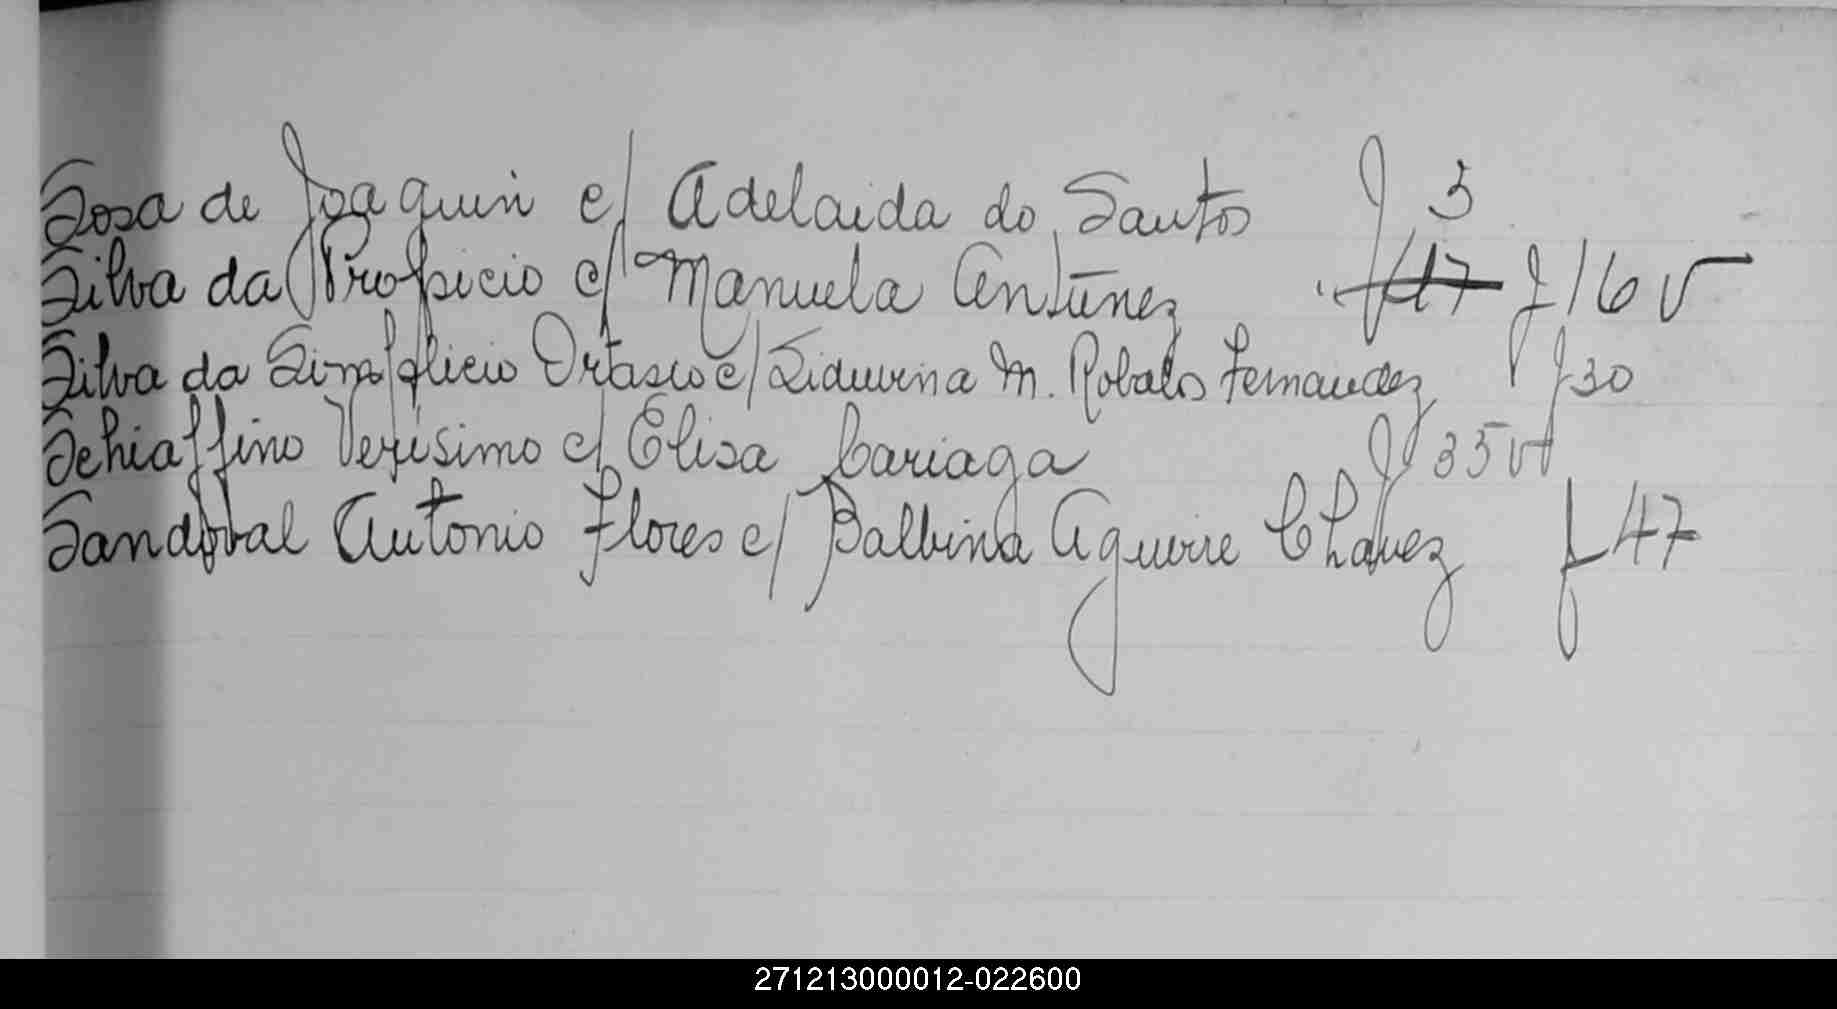 Sosa de Joaquin c/ Adelaida do Santos f 3
Silva da Profsicio c/ Manuela Antúnez f 17 f 16 v
Silva da Simplicio c/ Liduvina M. Robalo Fernandez f 30
Schiaffino Verísimo c/ Elisa Cariaga f 35 v
Sandoval Antonio Flores c/ Balbina Aguirre Chávez f 47
271213000012-022600